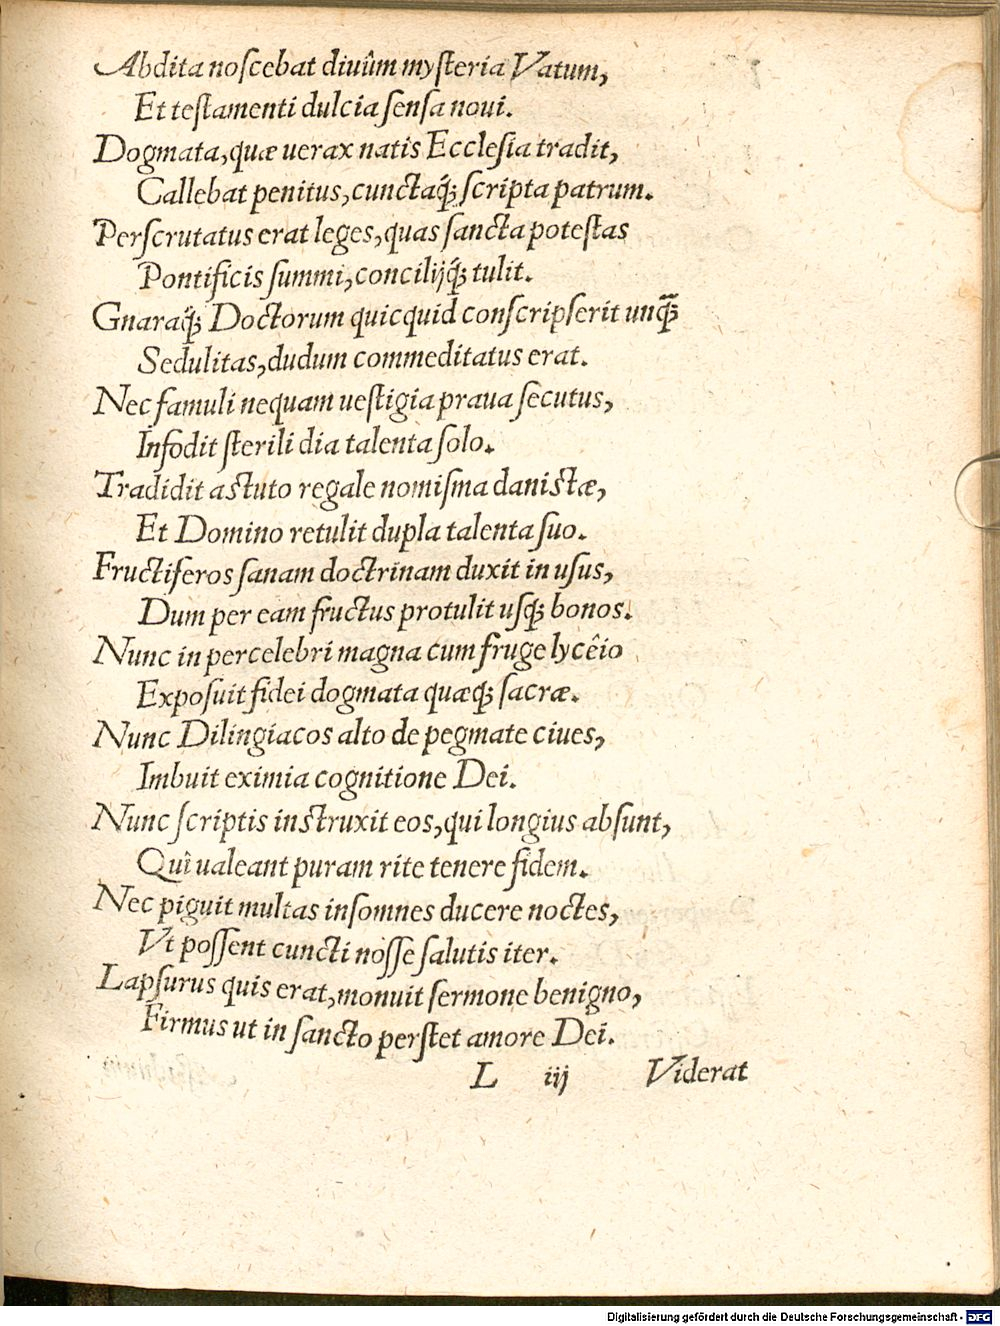 Abdita noſcebat diuûm myſteria Vatum,
Et teſtamenti dulcia ſenſa noui.
Dogmata, quæ uerax natis Eccleſia tradit,
Callebat penitus, cunctaq́; ſcripta patrum.
Perſcrutatus erat leges, quas ſancta poteſtas
Pontificis ſummi, concilijq́; tulit.
Gnaraq́; Doctorum quicquid conſcripſerit unq̃
Sedulitas, dudum commeditatus erat.
Nec famuli nequam ueſtigia praua ſecutus,
Infodit ſterili dia talenta ſolo.
Tradidit aſtuto regale nomiſma daniſtæ,
Et Domino retulit dupla talenta ſuo.
Fructiferos ſanam doctrinam duxit in uſus,
Dum per eam fructus protulit uſq; bonos.
Nunc in percelebri magna cum fruge lycêio
Expoſuit fidei dogmata quæq; ſacræ.
Nunc Dilingiacos alto de pegmate ciues,
Imbuit eximia cognitione Dei.
Nunc ſcriptis inſtruxit eos, qui longius abſunt,
Quî ualeant puram rite tenere fidem.
Nec piguit multas inſomnes ducere noctes,
Vt poſſent cuncti noſſe ſalutis iter.
Lapſurus quis erat, monuit ſermone benigno,
Firmus ut in ſancto perſtet amore Dei.
L iij Viderat
Digitalisierung gefördert durch die Deutsche Forschungsgemeinschaft - DFG